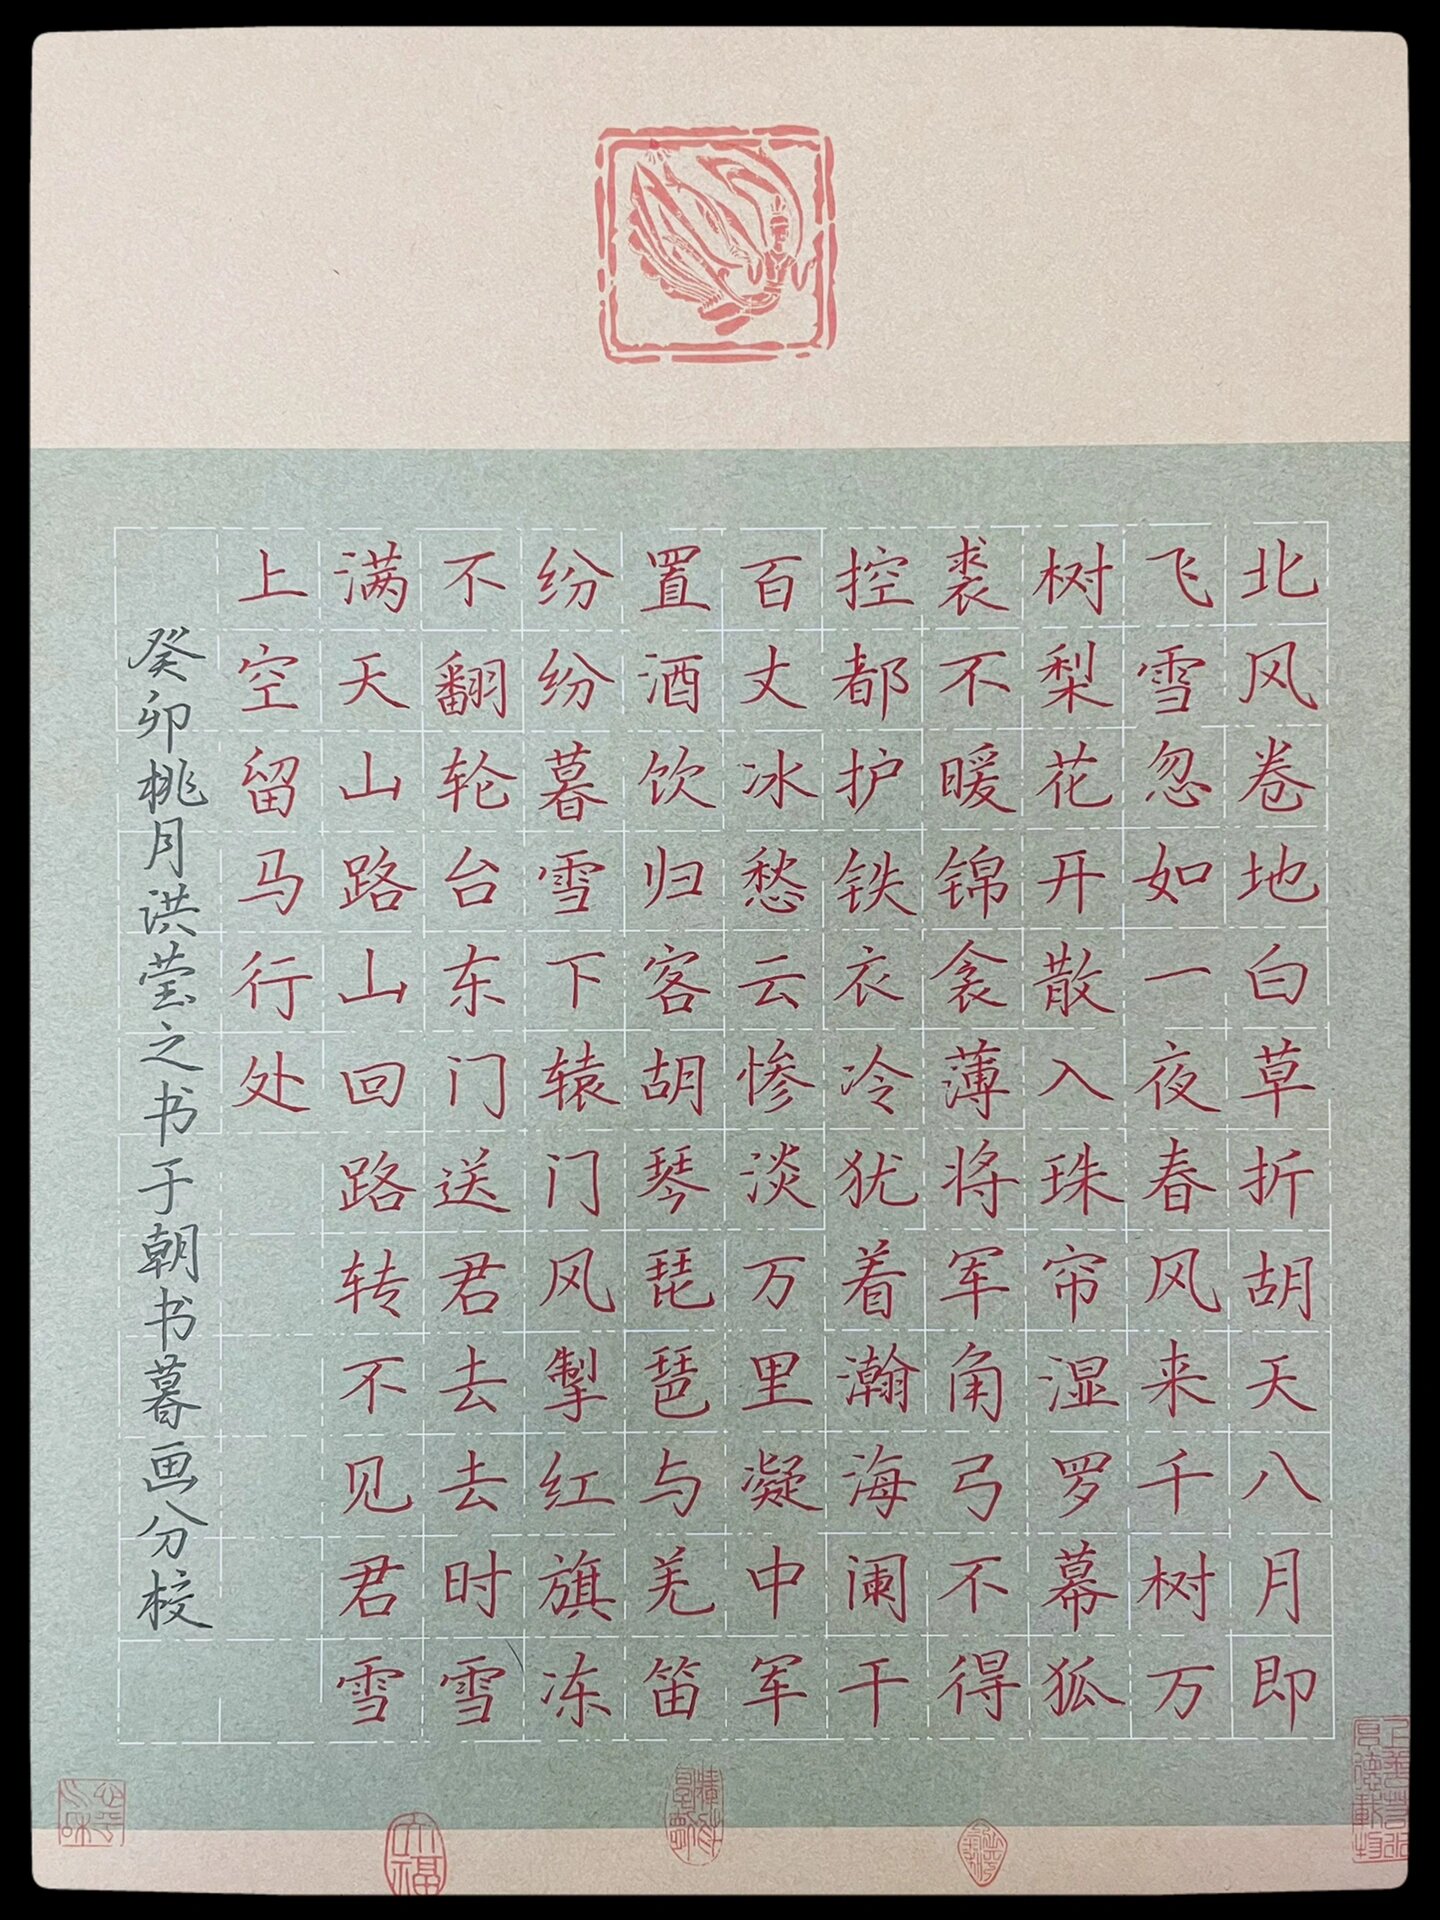 北风卷地白草折胡天八月即
飞雪忽如一夜春风来千树万
树梨花开散入珠帘湿罗幕狐
裘不暖锦衾薄将军角弓不得
控都护铁衣冷犹着瀚海阑干
百丈冰愁云惨淡万里凝中军
置酒饮归客胡琴琵琶与羌笛
纷纷暮雪下辕门风掣红旗冻
不翻轮台东门送君去去时雪
满天山路山回路转不见君雪
上空留马行处
癸卯桃月洪莹之书于朝书暮画分校